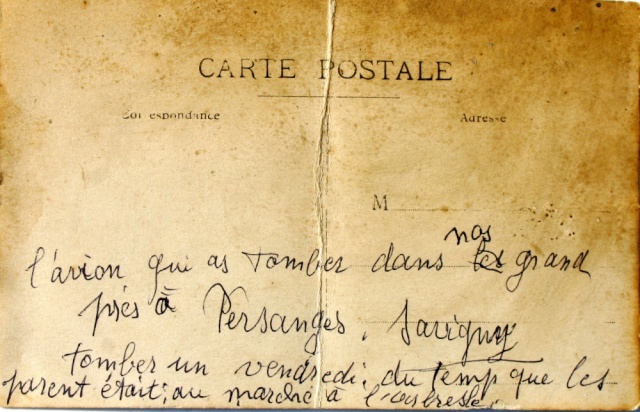 CARTE POSTALE
Correspondance
Adresse
M
l'avion qui as tomber dans nos grand
prés à Persanges, Savigny
tomber un vendredi, du temp que les
parent était; au marché à